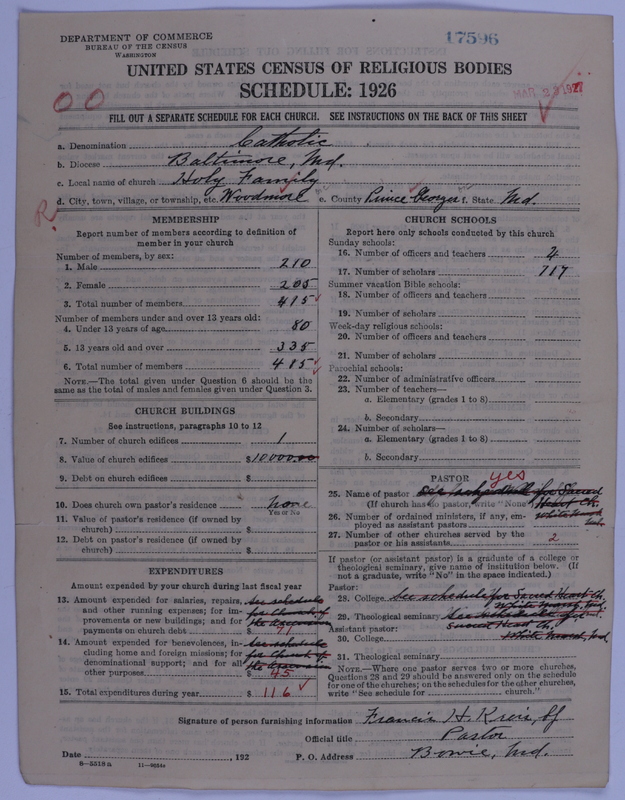 DEPARTMENT OF COMMERCE
BUREAU OF THE CENSUS
WASHINGTON
17596
UNITED STATES CENSUS OF RELIGIOUS BODIES
SCHEDULE: 1926
MAR 23 1927
FILL OUT A SEPARATE SCHEDULE FOR EACH CHURCH. SEE INSTRUCTIONS ON THE BACK OF THIS SHEET
a. Denomination Catholic
b. Diocese Baltimore, Md.
c. Local name of church Holy Family
d. City, town, village, or township, etc. Woodmore e. County Prince Georges f. State Md.
R
MEMBERSHIP
Report number of members according to definition of
member in your church
Number of members, by sex:
1. Male 210
2. Female 205
3. Total number of members 415
Number of members under and over 13 years old:
4. Under 13 years of age 80
5. 13 years old and over 335
6. Total number of members 415
NOTE.—The total given under Question 6 should be the
same as the total of males and females given under Question 3.
CHURCH BUILDINGS
See instructions, paragraphs 10 to 12
7. Number of church edifices 1
8. Value of church edifices $10000.00
9. Debt on church edifices $
10. Does church own pastor's residence none
Yes or No
11. Value of pastor's residence (if owned by
church) $
12. Debt on pastor's residence (if owned by
church) $
EXPENDITURES
Amount expended by your church during last fiscal year
13. Amount expended for salaries, repairs, See schedule
and other running expenses; for im- for Church of
provements or new buildings; and for the Ascension
payments on church debt $ 71
14. Amount expended for benevolences, in- See schedule
cluding home and foreign missions; for for Church of
denominational support; and for all the Ascension
other purposes $ 45
15. Total expenditures during year $ 116
CHURCH SCHOOLS
Report here only schools conducted by this church
Sunday schools:
16. Number of officers and teachers 2
17. Number of scholars 117
Summer vacation Bible schools:
18. Number of officers and teachers
19. Number of scholars
Week-day religious schools:
20. Number of officers and teachers
21. Number of scholars
Parochial schools:
22. Number of administrative officers
23. Number of teachers—
a. Elementary (grades 1 to 8)
b. Secondary
24. Number of scholars—
a. Elementary (grades 1 to 8)
b. Secondary
PASTOR
yes
25. Name of pastor See schedule for Sacred
(If church has no pastor, write "None") Heart Ch.
26. Number of ordained ministers, if any, em-
ployed as assistant pastors
27. Number of other churches served by the
pastor or his assistants 2
If pastor (or assistant pastor) is a graduate of a college or
theological seminary, give name of institution below. (If
not a graduate, write "No" in the space indicated.)
Pastor:
28. College See schedule for Sacred Heart Ch.
29. Theological seminary See schedule for
Assistant pastor: Sacred Heart Ch.
30. College
31. Theological seminary
NOTE.—Where one pastor serves two or more churches,
Questions 28 and 29 should be answered only on the schedule
for one of the churches; on the schedules for the other churches,
write "See schedule for church."
Signature of person furnishing information Francis H. Kreis, sj
Official title Pastor
Date , 192 P. O. Address Bowie, Md.
8—5518a 11—9254a